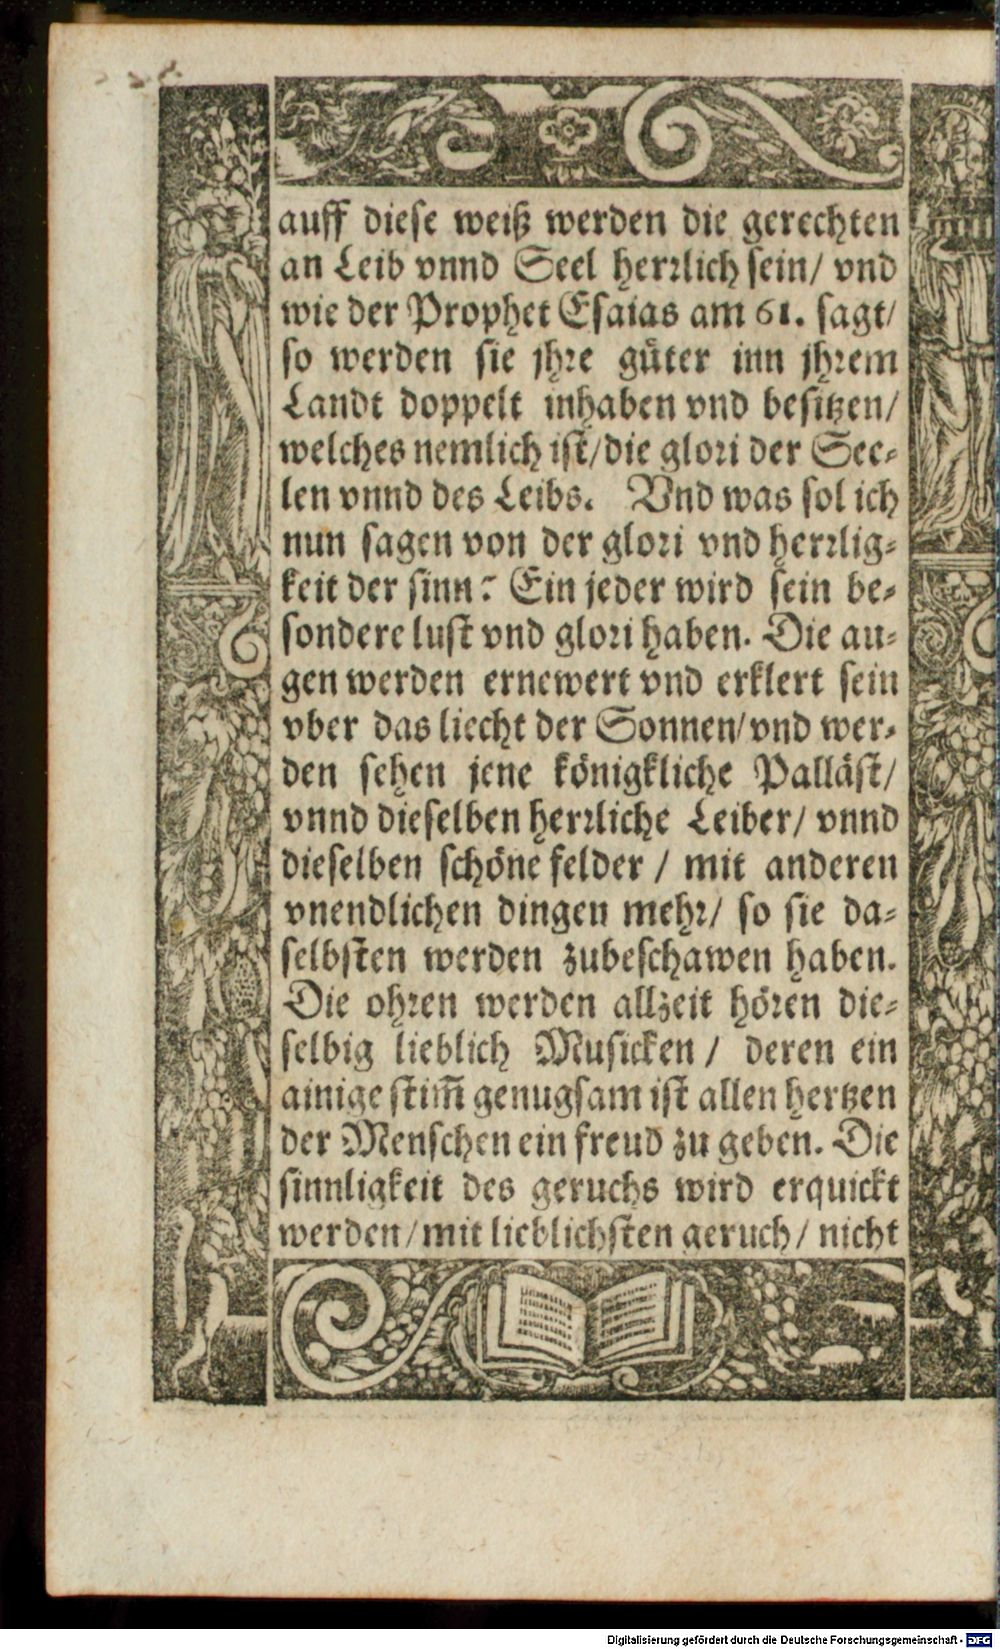 auff diese weiß werden die gerechten
an Leib vnnd Seel herrlich sein/ vnd
wie der Prophet Esaias am 61. sagt/
so werden sie jhre güter inn jhrem
Landt doppelt inhaben vnd besitzen/
welches nemlich ist/die glori der See-
len vnnd des Leibs. Vnd was sol ich
nun sagen von der glori vnd herrlig-
keit der sinn? Ein jeder wird sein be-
sondere lust vnd glori haben. Die au-
gen werden ernewert vnd erklert sein
vber das liecht der Sonnen/vnd wer-
den sehen jene königkliche Palläst/
vnnd dieselben herrliche Leiber/ vnnd
dieselben schöne felder / mit anderen
vnendlichen dingen mehr/ so sie da-
selbsten werden zubeschawen haben.
Die ohren werden allzeit hören die-
selbig lieblich Musicken / deren ein
ainige stim̃ genugsam ist allen hertzen
der Menschen ein freud zu geben. Die
sinnligkeit des geruchs wird erquickt
werden/mit lieblichsten geruch/ nicht
Digitalisierung gefördert durch die Deutsche Forschungsgemeinschaft - DFG